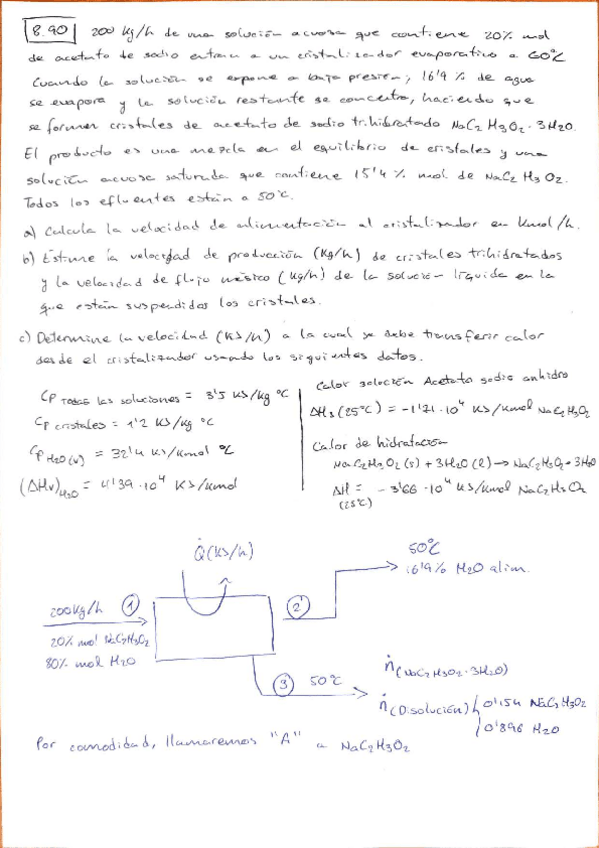 8.90 200 kg/h de una solución acuosa que contiene 20% mol
de acetato de sodio entran a un cristalizador evaporativo a 60°C
Cuando la solución se expone a baja presión, 16'9 % de agua
se evapora y la solución restante se concentra, haciendo que
se formen cristales de acetato de sodio trihidratado NaC2H3O2·3H2O.
El producto es una mezcla en el equilibrio de cristales y una
solución acuosa saturada que contiene 15'4 % mol de NaC2H3O2.
Todos los efluentes están a 50°C.
a) Calcula la velocidad de alimentación al cristalizador en Kmol/h.
b) Estime la velocidad de producción (Kg/h) de cristales trihidratados
y la velocidad de flujo másico (Kg/h) de la solución líquida en la
que están suspendidos los cristales.
c) Determine la velocidad (KJ/h) a la cual se debe transferir calor
desde el cristalizador usando los siguientes datos.
Cp todas las soluciones = 3'5 KJ/kg °C
Cp cristales = 1'2 KJ/kg °C
Cp H2O (v) = 32'4 KJ/kmol °C
(ΔHv)H2O = 4'39·10^4 KJ/Kmol
Calor solución Acetato sodio anhidro
ΔHs (25°C) = -1'71·10^4 KJ/Kmol NaC2H3O2
Calor de hidratación
NaC2H3O2 (s) + 3H2O (l) → NaC2H3O2·3H2O
ΔH = -3'66·10^4 KJ/Kmol NaC2H3O2
(25°C)
Q̇ (KJ/h)
50°C
16'9% H2O alim.
200 kg/h
1
2
20% mol NaC2H3O2
80% mol H2O
3
50°C
ṅ (NaC2H3O2·3H2O)
ṅ (Disolución)
0'154 NaC2H3O2
0'896 H2O
Por comodidad, llamaremos "A" a NaC2H3O2